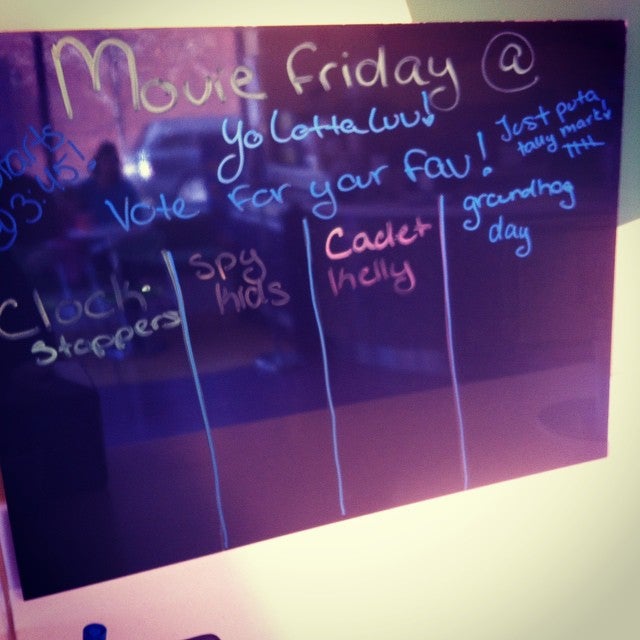 Movie Friday @
Yo Lotta Luv!
Vote for your fav!
Just put a
tally mark!
starts
@ 3:45!
Clock-
stoppers
Spy
Kids
Cadet
Kelly
groundhog
day